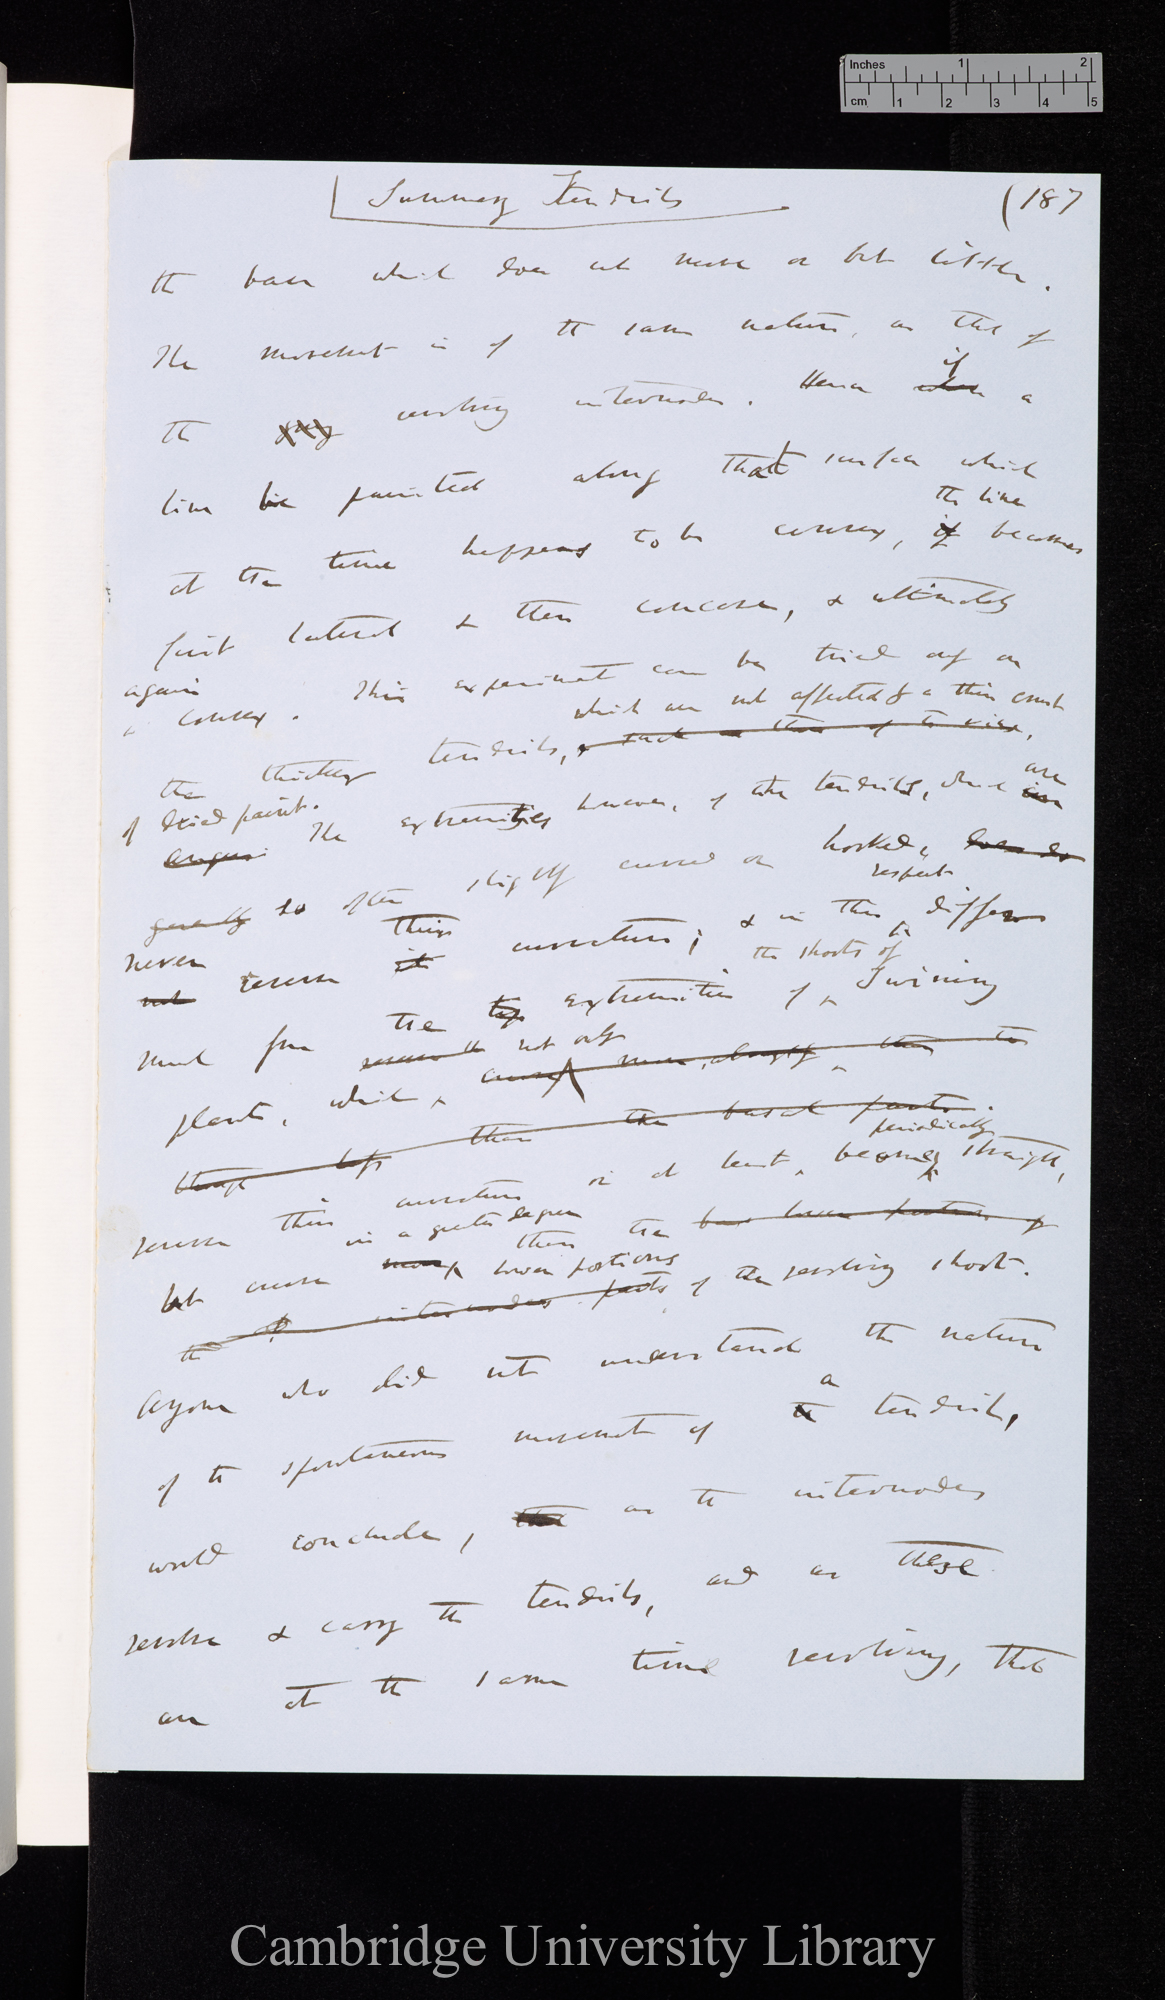 Inches 1 2
cm 1 2 3 4 5
Summary Tendrils (187
the base which does not move or but little.
The movement is of the same nature, as that of
if
the revolving internodes. Hence when a
line be painted along that surface which
the line
at the time happens to be convex, it becomes
first lateral & then concave, & ultimately
again
convex. This experiment can be tried only on
which are not affected by a thin crust
the thicker tendrils, such as those of the vine,
of dried paint. are
The extremities however, of the tendrils, which
are often slightly curved or hooked,
never this respect
not reverse it curvature; & in this differ
the shoots of
much from the tip extremities of twining
reverse the not only
plants, which curve more, although than the
though less than the basal parts.
periodically
reverse their curvature or at least, become straight,
in a greater degree
but curve more than the lower portion of
lower portions
the internodes parts of the revolving shoot.
Anyone who did not understand the nature
a
of the spontaneous movement of the tendrils,
would conclude, that as the internodes
revolve & carry the tendrils, and as these
are at the same time revolving, that
Cambridge University Library